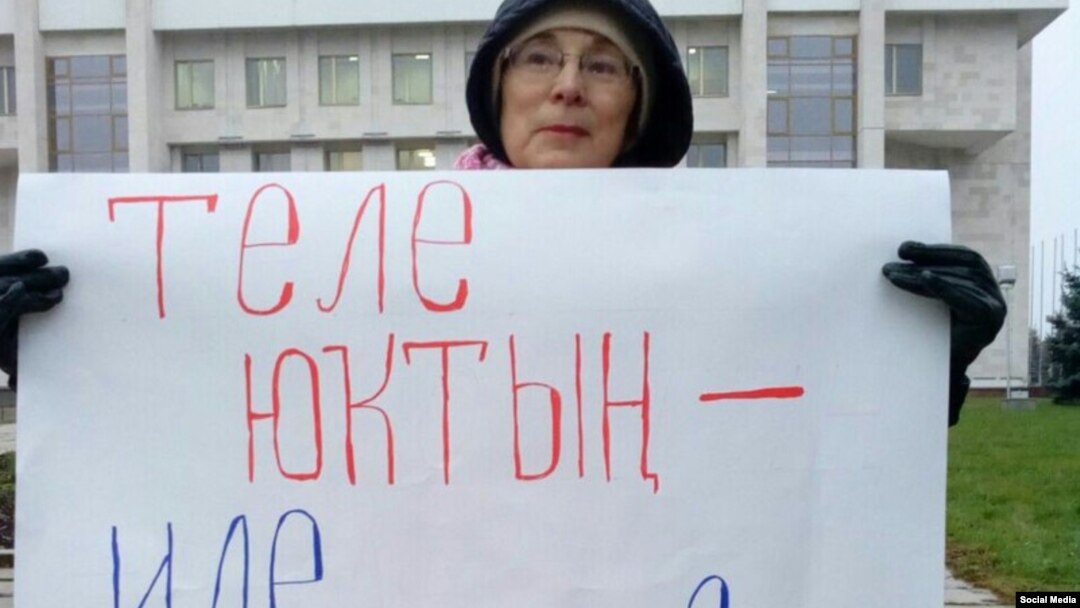 теле
юктың —
иле
Social Media